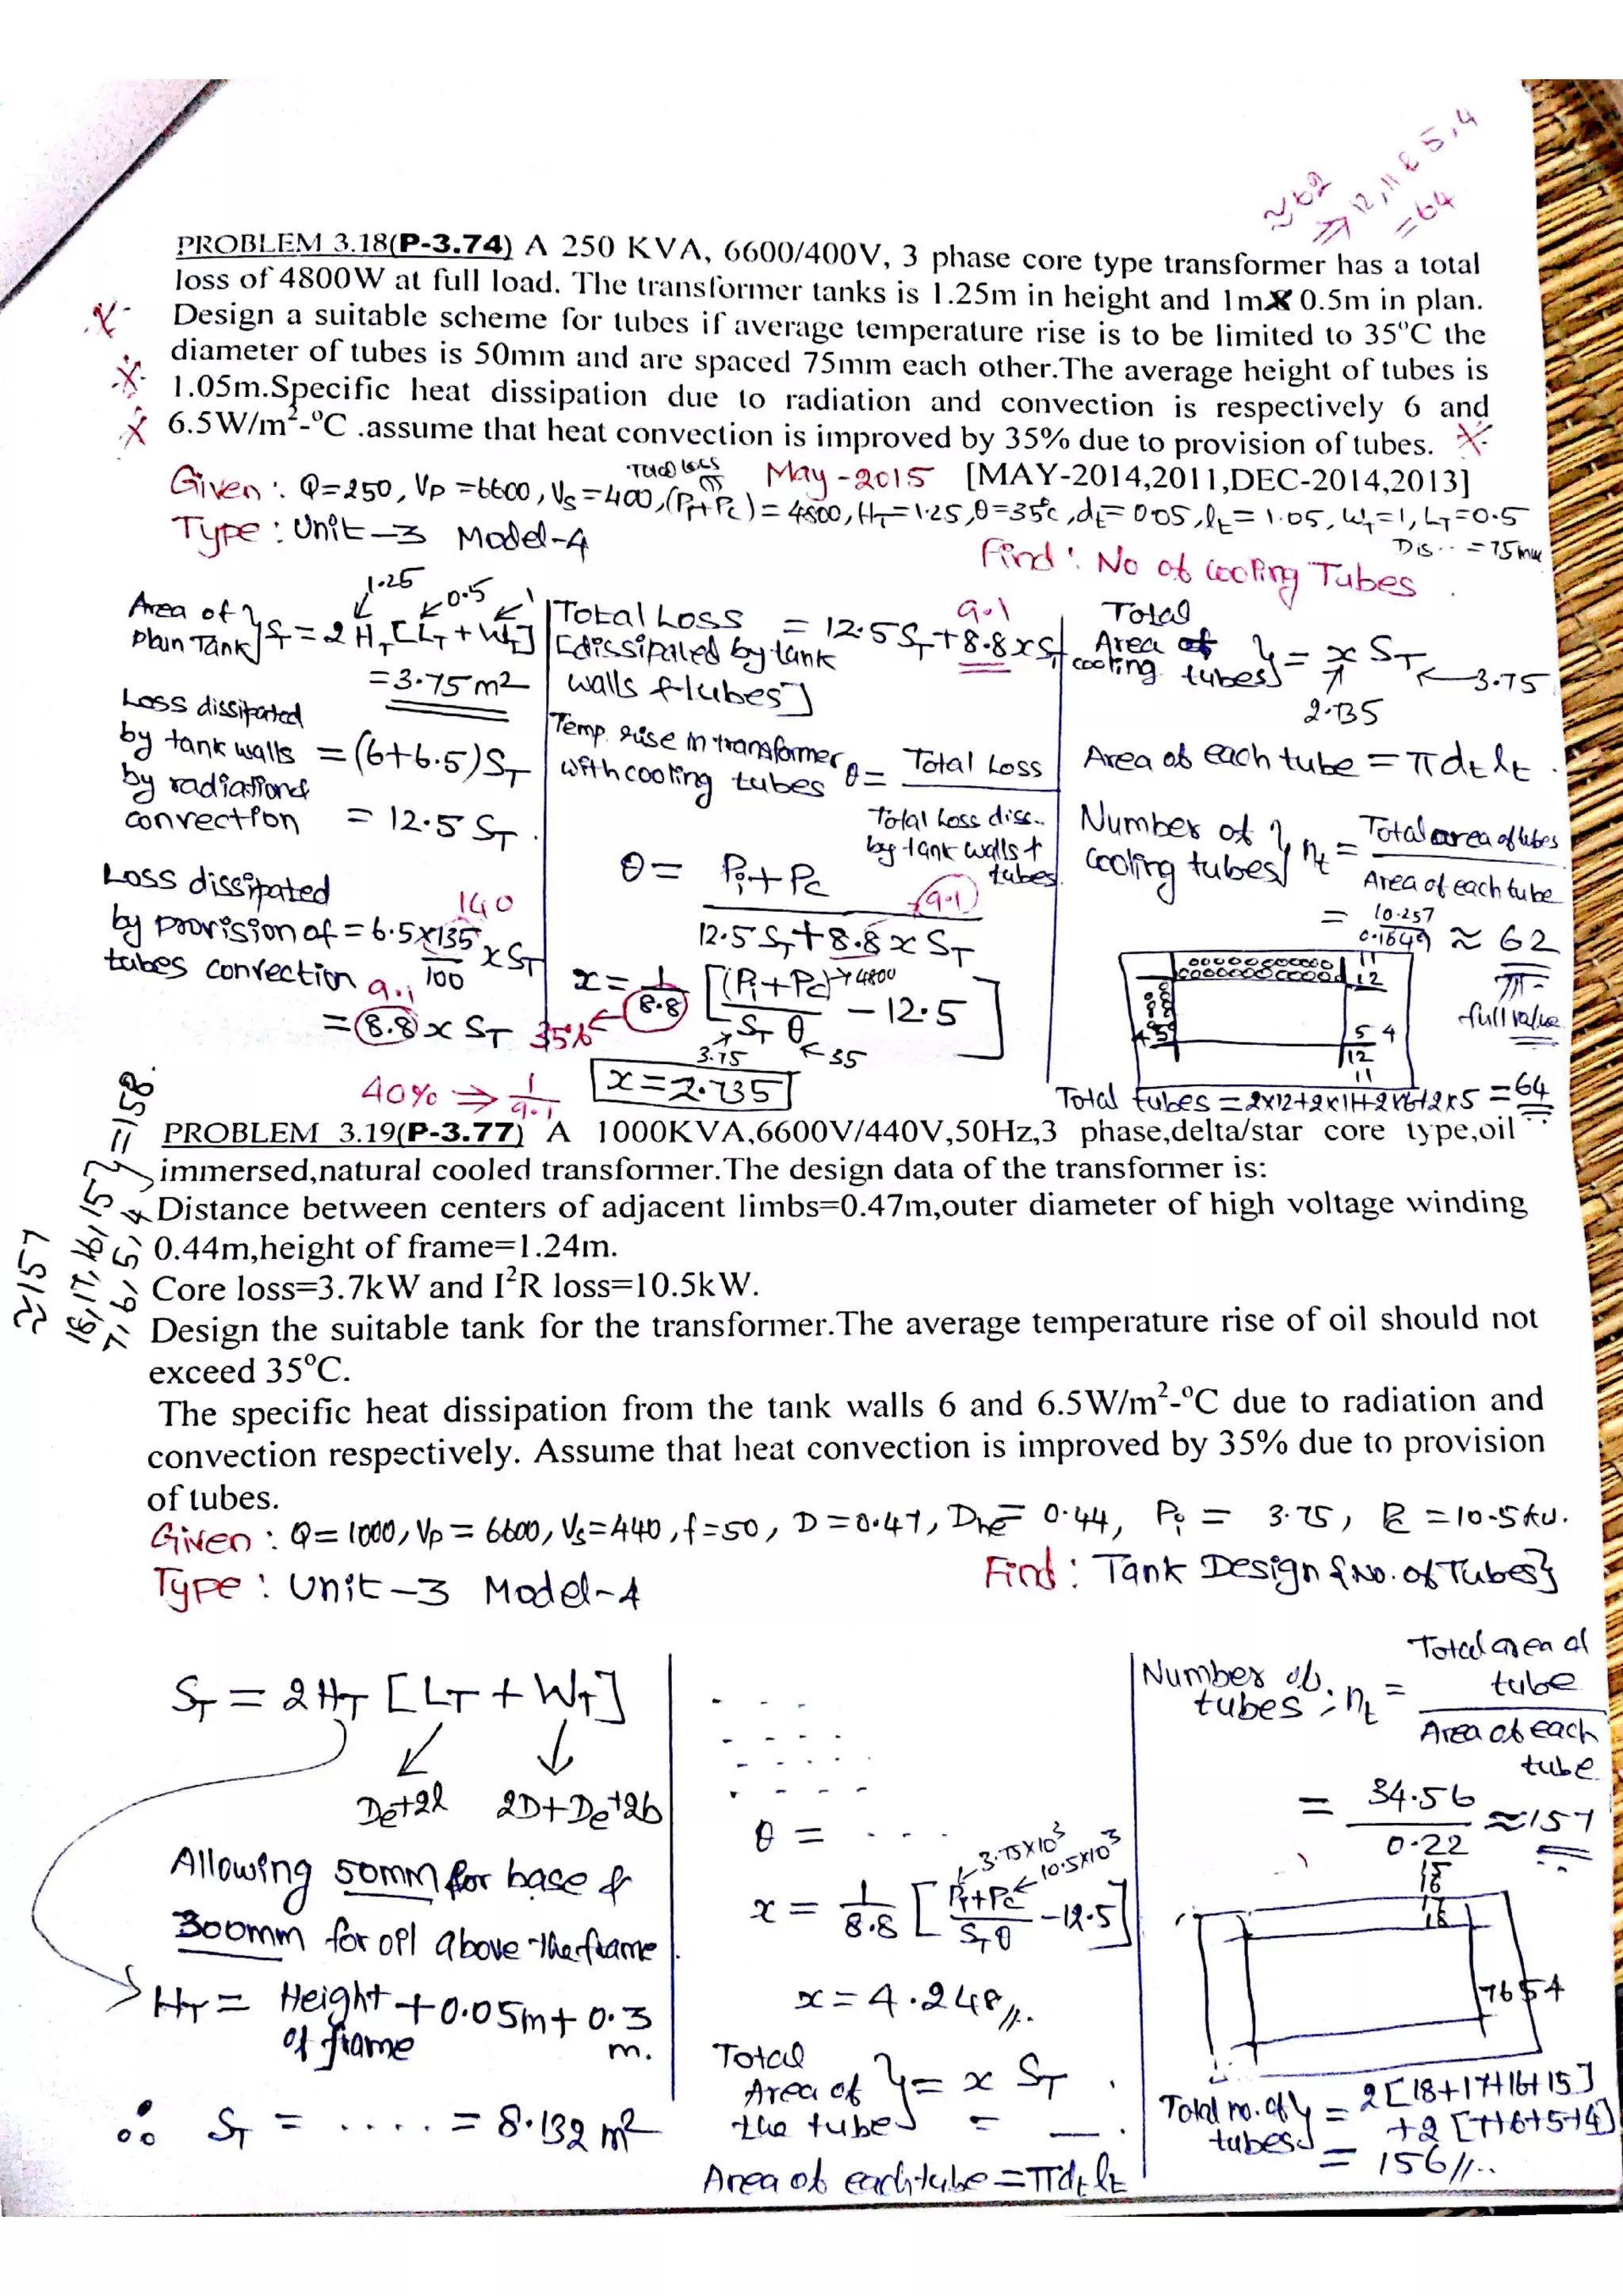 ≈62
⇒ 12,11 & 5,4
=64
PROBLEM 3.18(P-3.74) A 250 KVA, 6600/400V, 3 phase core type transformer has a total
loss of 4800W at full load. The transformer tanks is 1.25m in height and 1mX 0.5m in plan.
Design a suitable scheme for tubes if average temperature rise is to be limited to 35°C the
diameter of tubes is 50mm and are spaced 75mm each other.The average height of tubes is
1.05m.Specific heat dissipation due to radiation and convection is respectively 6 and
6.5W/m²-°C .assume that heat convection is improved by 35% due to provision of tubes.
May-2015 [MAY-2014,2011,DEC-2014,2013]
Total loss
Given: Q=250, Vp=6600, Vs=400, (Pi+Pc)=4800, HT=1.25, θ=35°c, dt=0.05, lt=1.05, WT=1, LT=0.5
Dis.. = 75mm
Type: Unit-3 Model-4
Find: No of Cooling Tubes
1.25 0.5 1
Area of Plain Tank } ST = 2 HT [LT + WT]
=3.75m²
Loss dissipated
by tank walls = (6+6.5)ST
by radiation &
convection = 12.5 ST.
Loss dissipated
140
by provision of = 6.5 X 135/100 x ST
tubes convection
9.1
= 8.8 x ST 35%
40% ⇒ 1/9.1
9.1
Total Loss = 12.5 ST + 8.8 x ST
[dissipated by tank
walls & tubes]
Temp. rise in transformer
with cooling tubes θ = Total Loss / Total Loss diss.. by tank walls + tubes
θ = Pi + Pc / 12.5 ST + 8.8 x ST
9.1
x = 1/8.8 [(Pi+Pc) / ST θ - 12.5]
4800
3.75 35
x = 2.735
Total
Area of
cooling tubes } = x ST
3.75
2.735
Area of each tube = π dt lt.
Number of
cooling tubes } nt = Total area of tubes / Area of each tube
= 10.257 / 0.1649 ≈ 62
full value
11
12
5 4
12
11
Total tubes = 2x12+2x11+2x6+2x5 = 64
PROBLEM 3.19(P-3.77) A 1000KVA,6600V/440V,50Hz,3 phase,delta/star core type,oil
immersed,natural cooled transformer.The design data of the transformer is:
Distance between centers of adjacent limbs=0.47m,outer diameter of high voltage winding
0.44m,height of frame=1.24m.
Core loss=3.7kW and I²R loss=10.5kW.
Design the suitable tank for the transformer.The average temperature rise of oil should not
exceed 35°C.
The specific heat dissipation from the tank walls 6 and 6.5W/m²-°C due to radiation and
convection respectively. Assume that heat convection is improved by 35% due to provision
of tubes.
≈157
18,17,16,15
7,6,5,4 } =158.
Given: Q=1000, Vp=6600, Vs=440, f=50, D=0.47, Dhe=0.44, Pi = 3.75, Pc =10.5kw.
Type: Unit-3 Model-4
Find: Tank Design {No. of Tubes}
ST = 2HT [LT + WT]
De+2l 2D+De+2b
Allowing 50mm for base &
300mm for oil above the frame
HT = Height of frame + 0.05m + 0.3 m.
∴ ST = ..... = 8.132 m²
θ = . . .
3.75x10³
10.5x10³
x = 1/8.8 [Pi+Pc / ST θ - 12.5]
x = 4.248//.
Total
Area of
the tube } = x ST.
= __.
Area of each tube = π dt lt
Number of
tubes; nt = Total area of tube / Area of each tube
= 34.56 / 0.22 ≈157
15
16
17
18
7 6 5 4
Total no. of
tubes } = 2[18+17+16+15]
+2 [7+6+5+4]
= 156//..